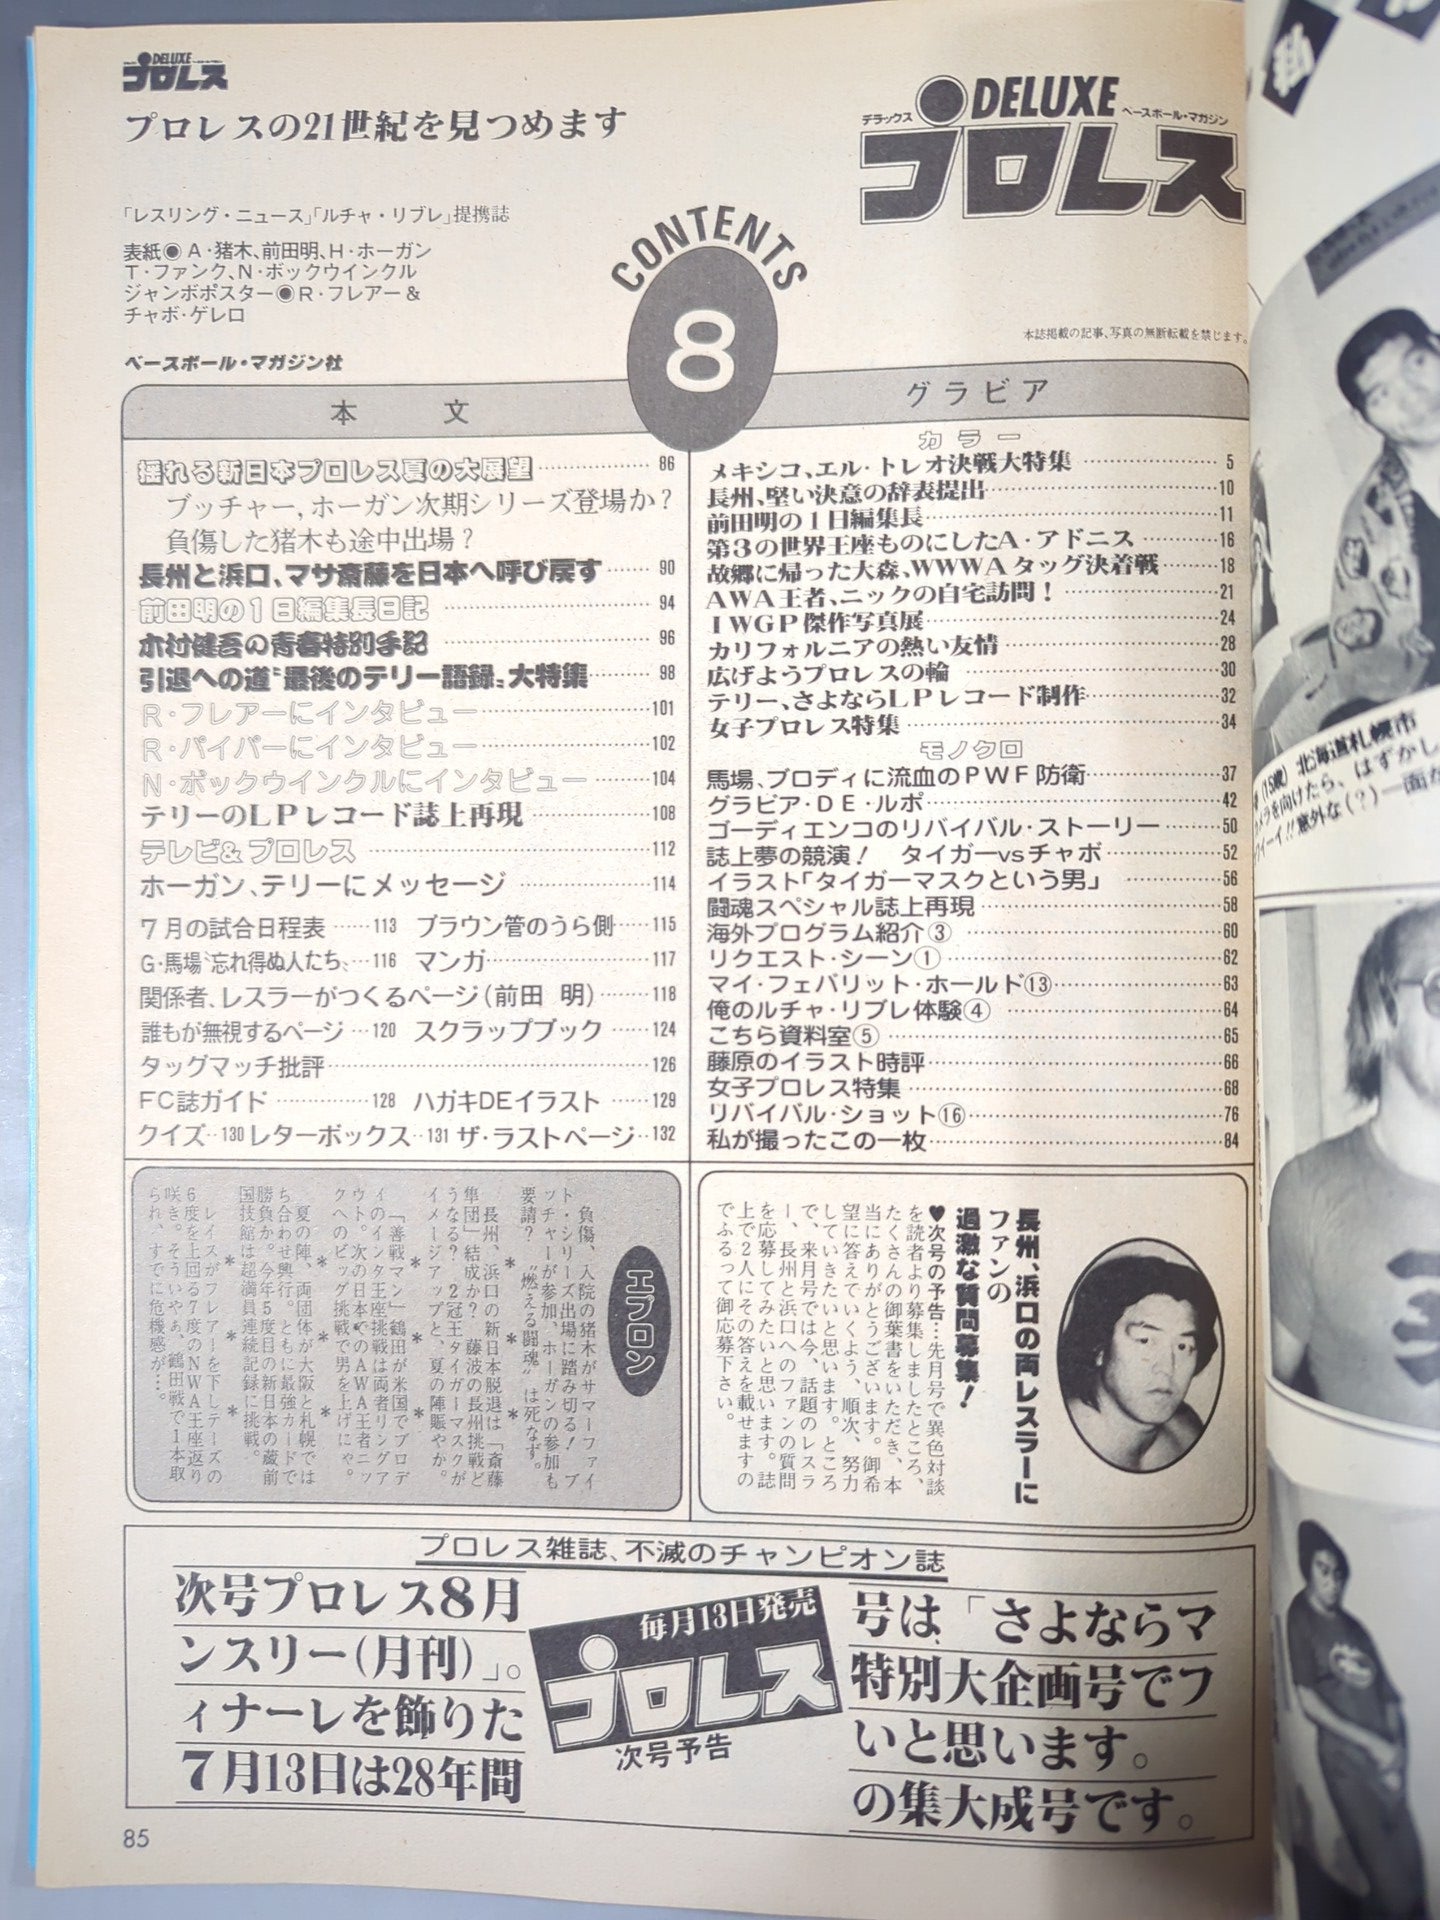 DELUXE
プロレス
プロレスの21世紀を見つめます
「レスリング・ニュース」「ルチャ・リブレ」提携誌
表紙◉A・猪木、前田明、H・ホーガン
T・ファンク、N・ボックウインクル
ジャンボポスター◉R・フレアー&
チャボ・ゲレロ
ベースボール・マガジン社
DELUXE
デラックス
ベースボール・マガジン
プロレス
CONTENTS
8
本誌掲載の記事、写真の無断転載を禁じます。
本文
揺れる新日本プロレス夏の大展望 86
ブッチャー,ホーガン次期シリーズ登場か?
負傷した猪木も途中出場?
長州と浜口、マサ斎藤を日本へ呼び戻す 90
前田明の1日編集長日記 94
木村健吾の青春特別手記 96
引退への道〝最後のテリー語録〟大特集 98
R・フレアーにインタビュー 101
R・パイパーにインタビュー 102
N・ボックウインクルにインタビュー 104
テリーのLPレコード誌上再現 108
テレビ&プロレス 112
ホーガン、テリーにメッセージ 114
7月の試合日程表 113 ブラウン管のうら側 115
G・馬場〝忘れ得ぬ人たち〟 116 マンガ 117
関係者、レスラーがつくるページ(前田 明) 118
誰もが無視するページ 120 スクラップブック 124
タッグマッチ批評 126
FC誌ガイド 128 ハガキDEイラスト 129
クイズ 130 レターボックス 131 ザ・ラストページ 132
グラビア
カラー
メキシコ、エル・トレオ決戦大特集 5
長州、堅い決意の辞表提出 10
前田明の1日編集長 11
第3の世界王座ものにしたA・アドニス 16
故郷に帰った大森、WWWAタッグ決着戦 18
AWA王者、ニックの自宅訪問! 21
IWGP傑作写真展 24
カリフォルニアの熱い友情 28
広げようプロレスの輪 30
テリー、さよならLPレコード制作 32
女子プロレス特集 34
モノクロ
馬場、ブロディに流血のPWF防衛 37
グラビア・DE・ルポ 42
ゴーディエンコのリバイバル・ストーリー 50
誌上夢の競演! タイガーvsチャボ 52
イラスト「タイガーマスクという男」 56
闘魂スペシャル誌上再現 58
海外プログラム紹介③ 60
リクエスト・シーン① 62
マイ・フェバリット・ホールド⑬ 63
俺のルチャ・リブレ体験④ 64
こちら資料室⑤ 65
藤原のイラスト時評 66
女子プロレス特集 68
リバイバル・ショット⑯ 76
私が撮ったこの一枚 84
エプロン
負傷、入院の猪木がサマーファイ
ト・シリーズ出場に踏み切る! ブ
ッチャーが参加、ホーガンの参加も
要請? 〝燃える闘魂〟は死なず。
* * *
長州、浜口の新日本脱退は「斎藤
隼団」結成か? 藤波の長州挑戦ど
うなる? 2冠王タイガーマスクが
イメージアップと、夏の陣賑やか。
* * *
「善戦マン」鶴田が米国でブロデ
ィのインタ王座挑戦は両者リングア
ウト。次の日本でのAWA王者ニッ
クへのビッグ挑戦で男を上げにゃ。
* * *
夏の陣、両団体が大阪と札幌では
ち合わせ興行。ともに最強カードで
勝負か。今年5度目の新日本の蔵前
国技館は超満員連続記録に挑戦。
* * *
レイスがフレアーを下しテーズの
6度を上回る7度のNWA王座返り
咲き。そういやぁ、鶴田戦で1本取
られ、すでに危機感が…。
長州、浜口の両レスラーに
ファンの
過激な質問募集!
♥次号の予告…先月号で異色対談
を読者より募集しましたところ、
たくさんの御葉書をいただき、本
当にありがとうございます。御希
望に答えていくよう、順次、努力
していきたいと思います。ところ
で、来月号では今、話題のレスラ
ー、長州と浜口へのファンの質問
を応募してみたいと思います。誌
上で2人にその答えを載せますの
でふるって御応募下さい。
プロレス雑誌、不滅のチャンピオン誌
次号プロレス8月号は、「さよならマ
ンスリー(月刊)」。特別大企画号でフ
ィナーレを飾りたいと思います。
7月13日は28年間の集大成号です。
毎月13日発売
プロレス
次号予告
85
私
(15歳) 北海道札幌市